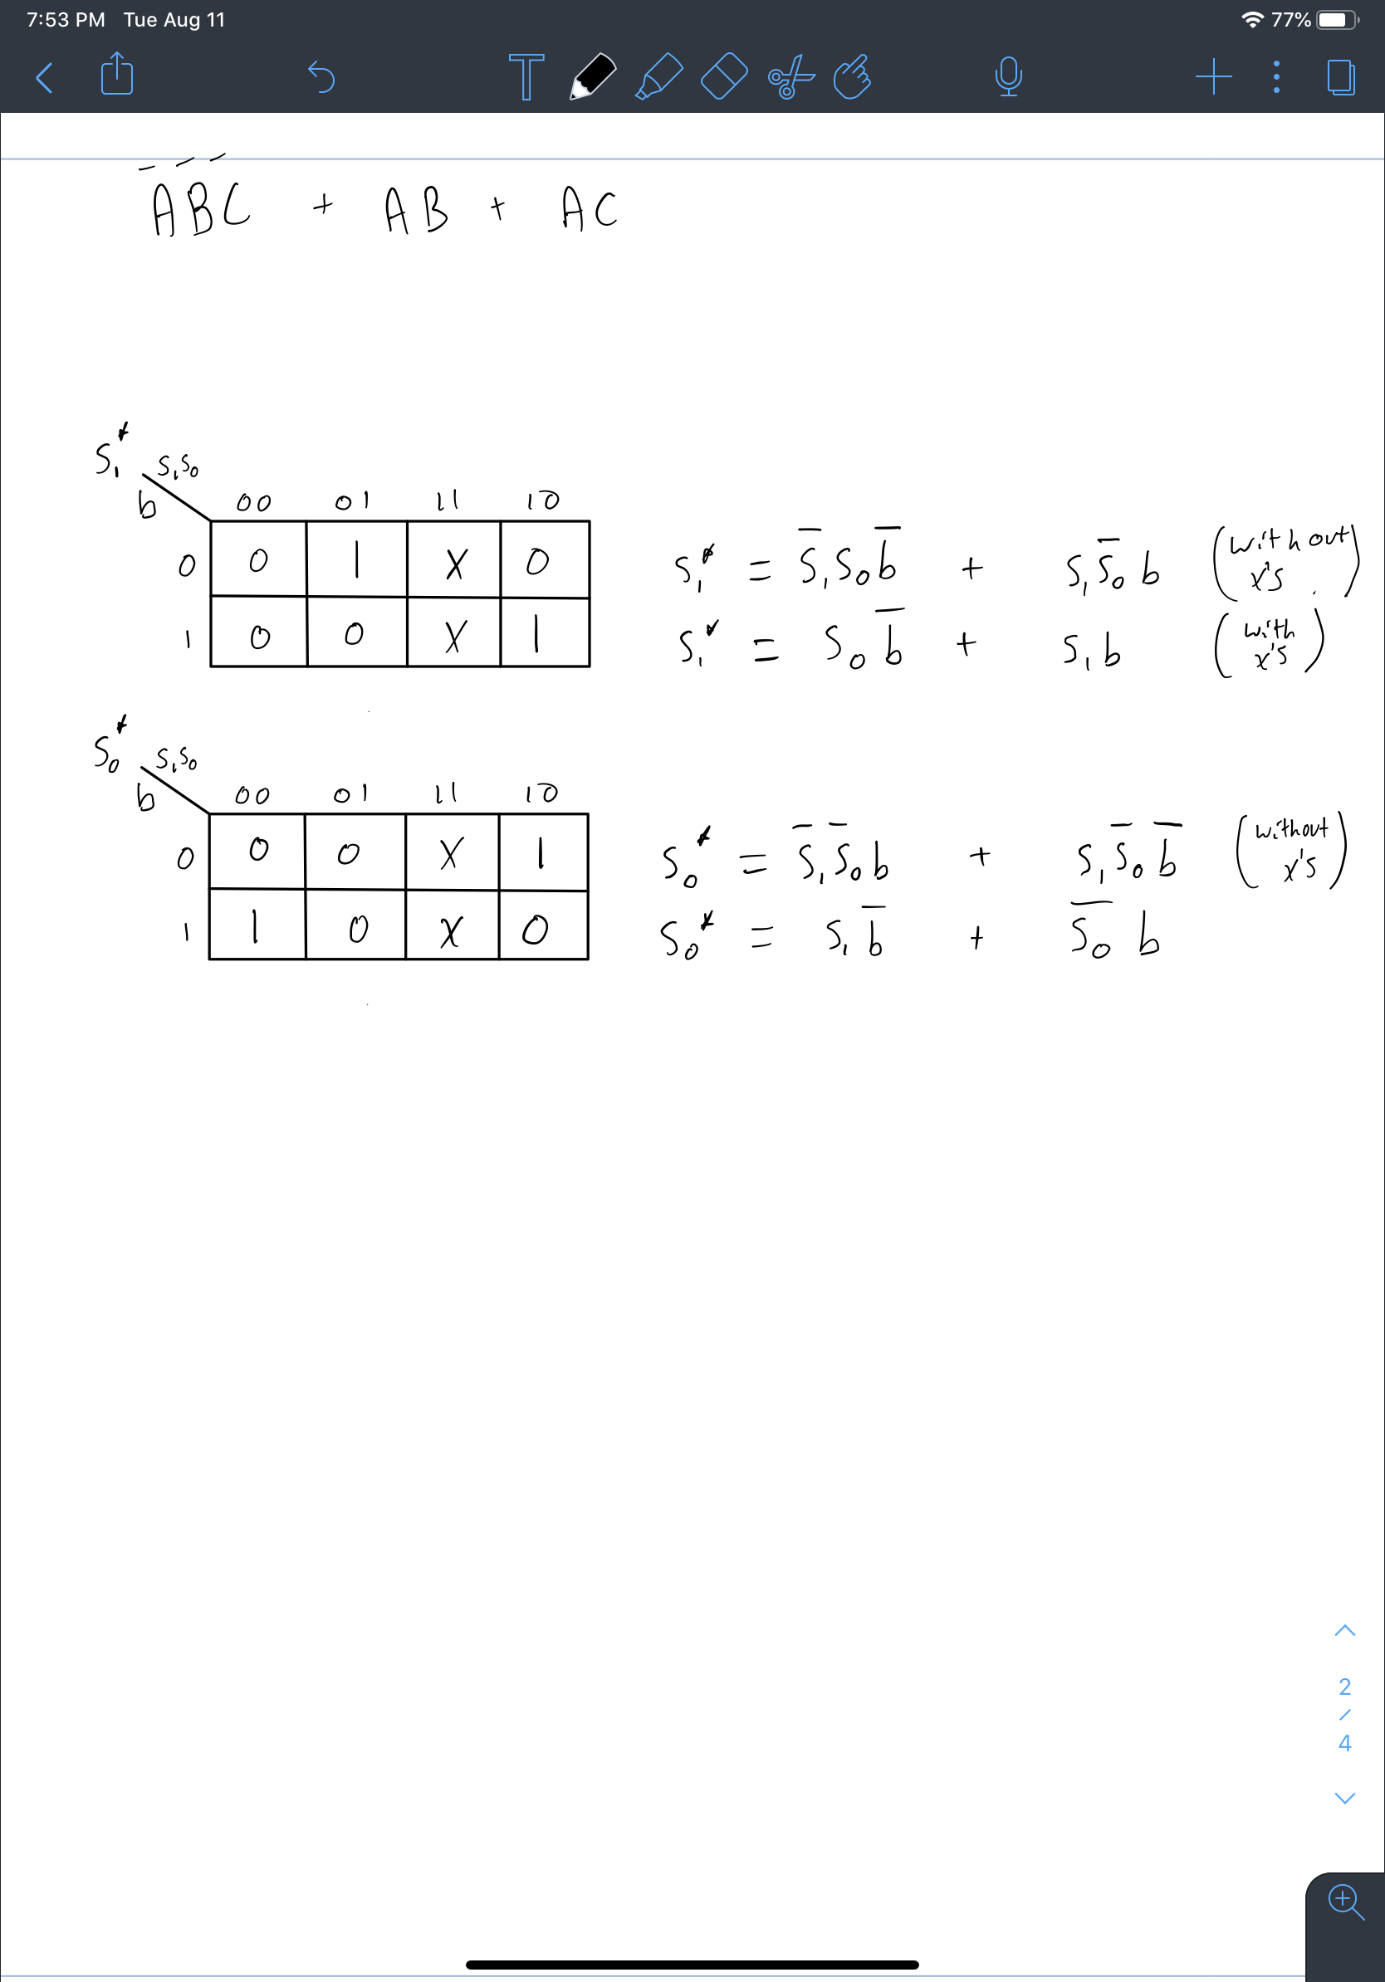 7:53 PM Tue Aug 11 77%
A̅B̅C̅ + AB + AC
S₁*
S₁S₀
b 00 01 11 10
0 0 1 X 0
1 0 0 X 1
S₁* = S̅₁S₀b̅ + S₁S̅₀b (without x's)
S₁* = S₀b̅ + S₁b (with x's)
S₀*
S₁S₀
b 00 01 11 10
0 0 0 X 1
1 1 0 X 0
S₀* = S̅₁S̅₀b + S₁S̅₀b̅ (without x's)
S₀* = S₁b̅ + S̅₀b
2
/
4